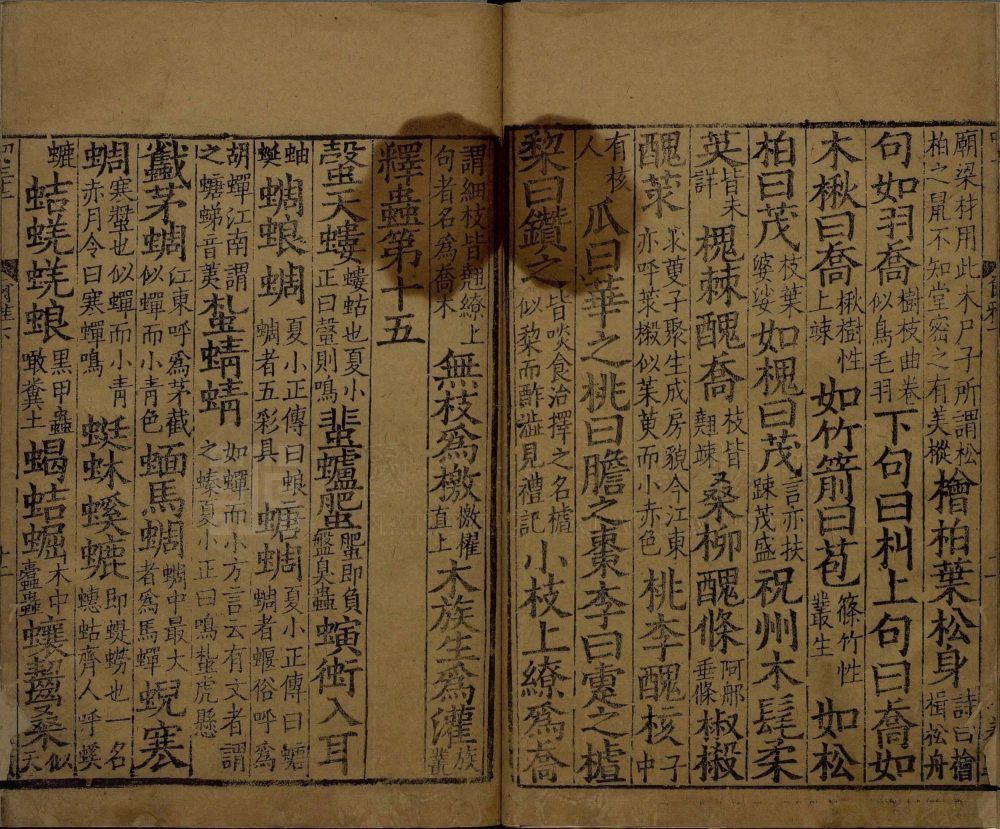 廟梁材用此木尸子所謂松柏之鼠不知堂密之有美樅檜柏葉松身詩曰檜楫松舟
句如羽喬樹枝曲卷似鳥毛羽下句曰朻上句曰喬如
木楸曰喬楸樹性上竦如竹箭曰苞篠竹性叢生如松
柏曰茂枝葉婆娑如槐曰茂言亦扶踈茂盛祝州木髦柔
英皆未詳槐棘醜喬枝皆翹竦桑柳醜條阿那垂條椒樧
醜莍莍萸子聚生成房貌今江東亦呼莍樧似茱萸而小赤色桃李醜核子中
有核人瓜曰華之桃曰膽之棗李曰疐之樝
棃曰鑽之皆啖食治擇之名樝似棃而酢澁見禮記小枝上繚爲喬
謂細枝皆翹繚上句者名爲喬木無枝爲檄檄櫂直上木族生爲灌族叢
釋蟲第十五
螜天螻螻蛄也夏小正曰螜則鳴蜚蠦肥蜰即負盤臭蟲螾衝入耳
蚰蜒蜩蜋蜩夏小正傳曰蜋蜩者五彩具螗蜩夏小正傳曰螗蜩者蝘俗呼爲
胡蟬江南謂之螗蛦音荑蚻蜻蜻如蟬而小方言云有文者謂之螓夏小正曰鳴蚻虎懸
蠽茅蜩江東呼爲茅截似蟬而小青色蝒馬蜩蜩中最大者爲馬蟬蜺寒
蜩寒螿也似蟬而小青赤月令曰寒蟬鳴蜓蚞螇螰即蝭蟧也一名蟪蛄齊人呼螇
螰蛣蜣蜣蜋黑甲蟲噉糞土蝎蛣𧌑木中蠹蟲蠰齧桑似天